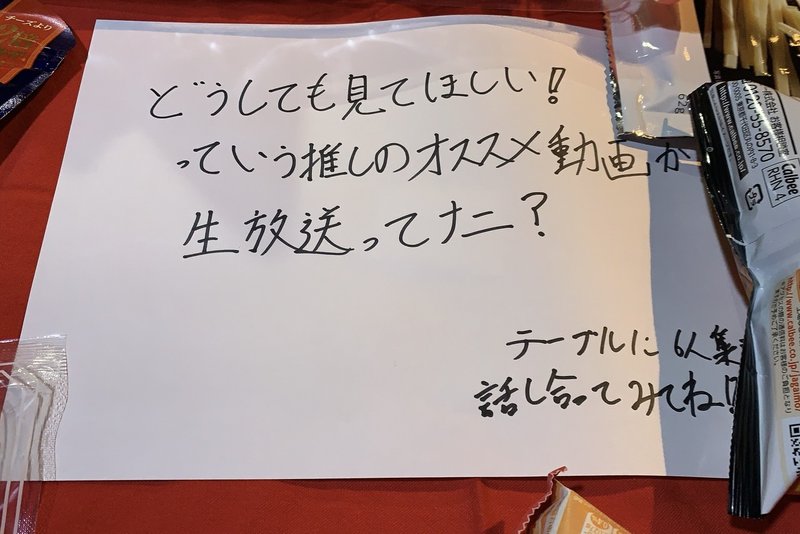 どうしても見てほしい!
っていう推しのオススメ動画か
生放送ってナニ?
テーブルに6人集
話し合ってみてね!!
チーズより
62g
Calbee
RHN 4
0120-55-8570
http://www.calbee.co.jp/jagaimo/